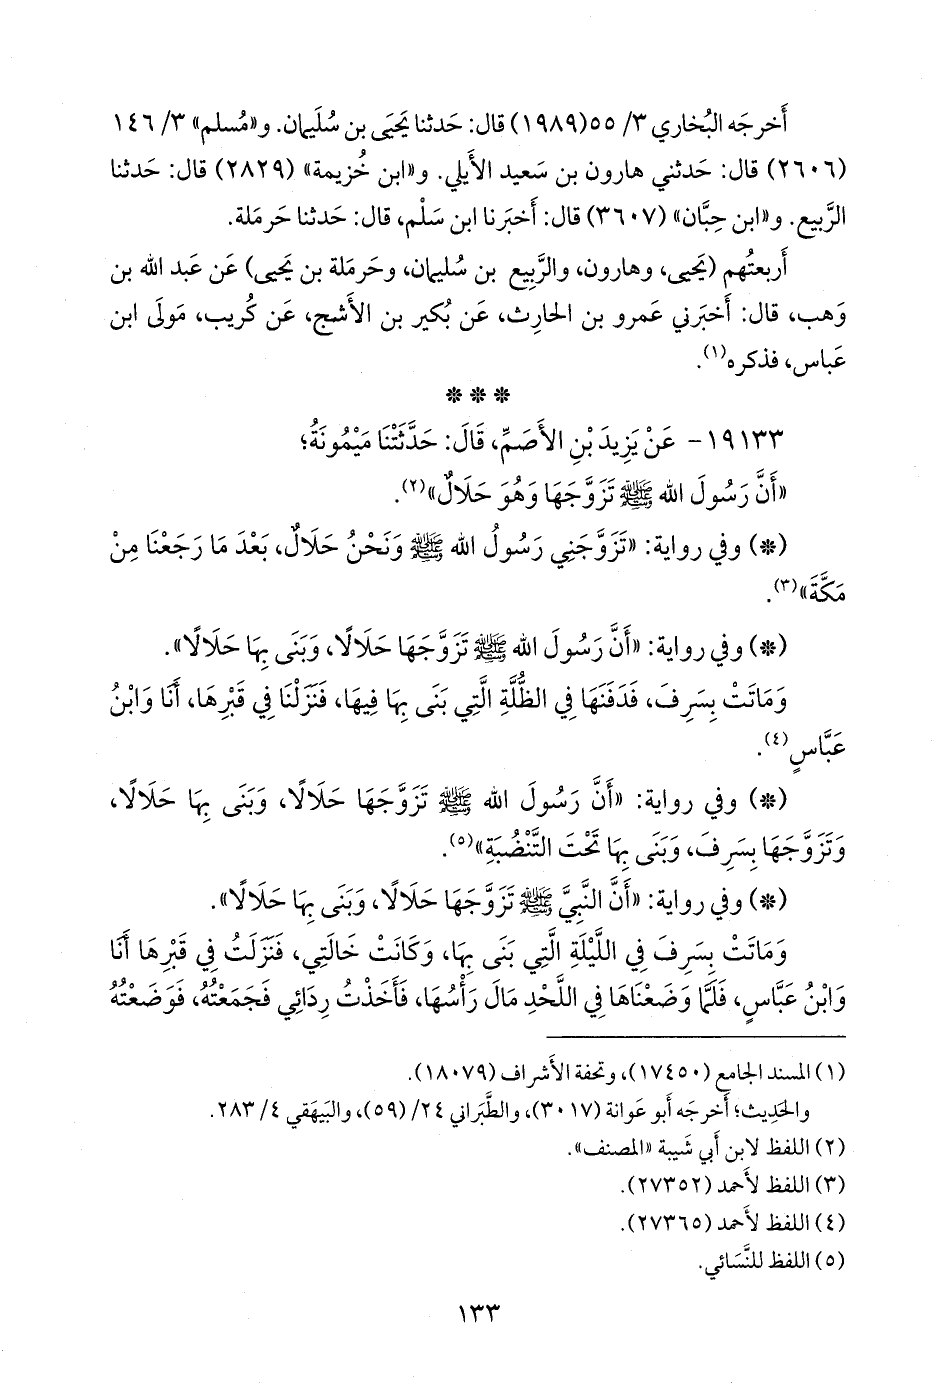 أَخرجَه البُخاري ٣/ ٥٥(١٩٨٩) قال: حَدثنا يَحيَى بن سُليمان. و«مُسلم» ٣/ ١٤٦
(٢٦٠٦) قال: حَدثني هارون بن سَعيد الأَيلي. و«ابن خُزيمة» (٢٨٢٩) قال: حَدثنا
الرَّبيع. و«ابن حِبَّان» (٣٦٠٧) قال: أَخبَرنا ابن سَلْم، قال: حَدثنا حَرمَلة.
أَربعتُهم (يَحيى، وهارون، والرَّبِيع بن سُليمان، وحَرملة بن يَحيى) عَن عَبد الله بن
وَهب، قال: أَخبَرني عَمرو بن الحارِث، عَن بُكير بن الأَشج، عَن كُريب، مَولَى ابن
عَباس، فذكره(١).
* * *
١٩١٣٣- عَنْ يَزِيدَ بْنِ الأَصَمِّ، قَالَ: حَدَّثَتْنَا مَيْمُونَةُ؛
«أَنَّ رَسُولَ الله ﷺ تَزَوَّجَهَا وَهُوَ حَلَالٌ»(٢).
(*) وفي رواية: «تَزَوَّجَنِي رَسُولُ الله ﷺ وَنَحْنُ حَلَالٌ، بَعْدَ مَا رَجَعْنَا مِنْ
مَكَّةَ»(٣).
(*) وفي رواية: «أَنَّ رَسُولَ الله ﷺ تَزَوَّجَهَا حَلَالًا، وَبَنَى بِهَا حَلَالًا».
وَمَاتَتْ بِسَرِفَ، فَدَفَنَهَا فِي الظُّلَّةِ الَّتِي بَنَى بِهَا فِيهَا، فَنَزَلْنَا فِي قَبْرِهَا، أَنَا وَابْنُ
عَبَّاسٍ(٤).
(*) وفي رواية: «أَنَّ رَسُولَ الله ﷺ تَزَوَّجَهَا حَلَالًا، وَبَنَى بِهَا حَلَالًا،
وَتَزَوَّجَهَا بِسَرِفَ، وَبَنَى بِهَا تَحْتَ التَّنْضُبَةِ»(٥).
(*) وفي رواية: «أَنَّ النَّبِيَّ ﷺ تَزَوَّجَهَا حَلَالًا، وَبَنَى بِهَا حَلَالًا».
وَمَاتَتْ بِسَرِفَ فِي اللَّيْلَةِ الَّتِي بَنَى بِهَا، وَكَانَتْ خَالَتِي، فَنَزَلَتُ فِي قَبْرِهَا أَنَا
وَابْنُ عَبَّاسٍ، فَلَمَّا وَضَعْنَاهَا فِي اللَّحْدِ مَالَ رَأْسُهَا، فَأَخَذْتُ رِدَائِي فَجَمَعْتُهُ، فَوَضَعْتُهُ
(١) المسند الجامع (١٧٤٥٠)، وتحفة الأَشراف (١٨٠٧٩).
والحَدِيث؛ أَخرجَه أَبو عَوانة (٣٠١٧)، والطَّبَراني ٢٤/ (٥٩)، والبَيهَقي ٤/ ٢٨٣.
(٢) اللفظ لابن أَبي شَيبة «المصنف».
(٣) اللفظ لأَحمد (٢٧٣٥٢).
(٤) اللفظ لأَحمد (٢٧٣٦٥).
(٥) اللفظ للنَّسَائي.
١٣٣